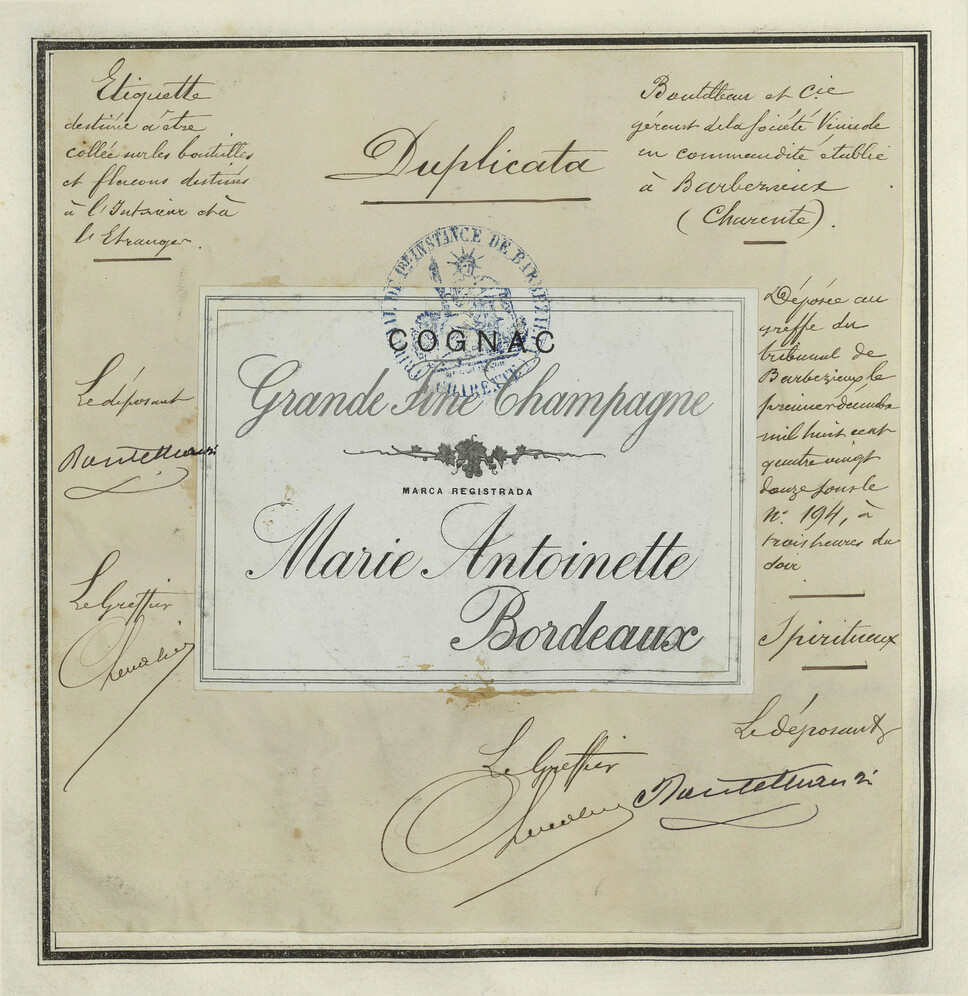 Etiquette
destinée à être
collée sur les bouteilles
et flacons destinés
à l'Intérieur et à
l'Etranger.
Duplicata
Boutelleau et Cie
gérant de la Société Vinicole
en commandite établie
à Barbezieux
(Charente).
TRIBUNAL DE 1RE INSTANCE DE BARBEZIEUX
CHARENTE
COGNAC
Grande Fine Champagne
MARCA REGISTRADA
Marie Antoinette
Bordeaux
Le déposant
Boutelleau
Le Greffier
Déposée au
greffe du
tribunal de
Barbezieux le
premier décembre
mil huit cent
quatre vingt
douze sous le
No. 194, à
trois heures du
soir
Spiritueux
Le déposant
Le Greffier
Boutelleau